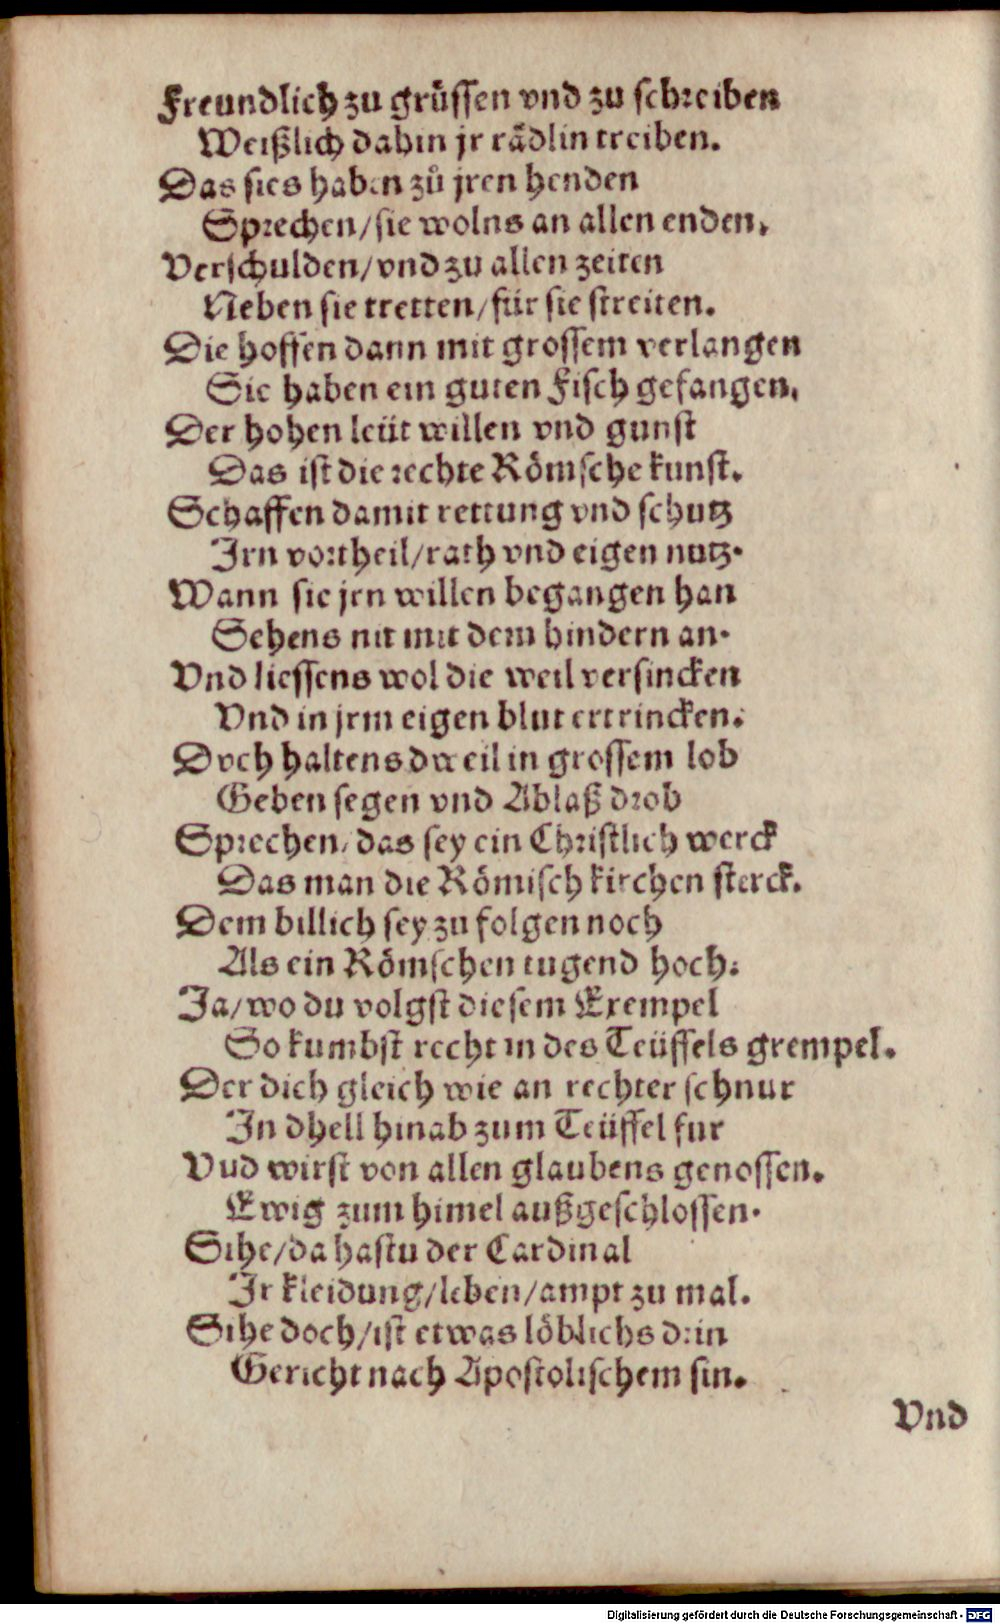 Freundlich zu grüssen vnd zu schreiben
Weißlich dahin jr rädlin treiben.
Das sies haben zů jren henden
Sprechen/sie wolns an allen enden.
Verschulden/vnd zu allen zeiten
Neben sie tretten/für sie streiten.
Die hoffen dann mit grossem verlangen
Sie haben ein guten Fisch gefangen.
Der hohen leüt willen vnd gunst
Das ist die rechte Römsche kunst.
Schaffen damit rettung vnd schutz
Irn vortheil/rath vnd eigen nutz.
Wann sie jrn willen begangen han
Sehens nit mit dem hindern an.
Vnd liessens wol die weil versincken
Vnd in jrm eigen blut ertrincken.
Doch haltens dweil in grossem lob
Geben segen vnd Ablaß drob
Sprechen/das sey ein Christlich werck
Das man die Römisch kirchen sterck.
Dem billich sey zu folgen noch
Als ein Römschen tugend hoch.
Ja/wo du volgst diesem Exempel
So kumbst recht in des Teüffels grempel.
Der dich gleich wie an rechter schnur
In dhell hinab zum Teüffel fur
Vud wirst von allen glaubens genossen.
Ewig zum himel außgeschlossen.
Sihe/da hastu der Cardinal
Ir kleidung/leben/ampt zu mal.
Sihe doch/ist etwas löblichs drin
Gericht nach Apostolischem sin.
Vnd
Digitalisierung gefördert durch die Deutsche Forschungsgemeinschaft - DFG